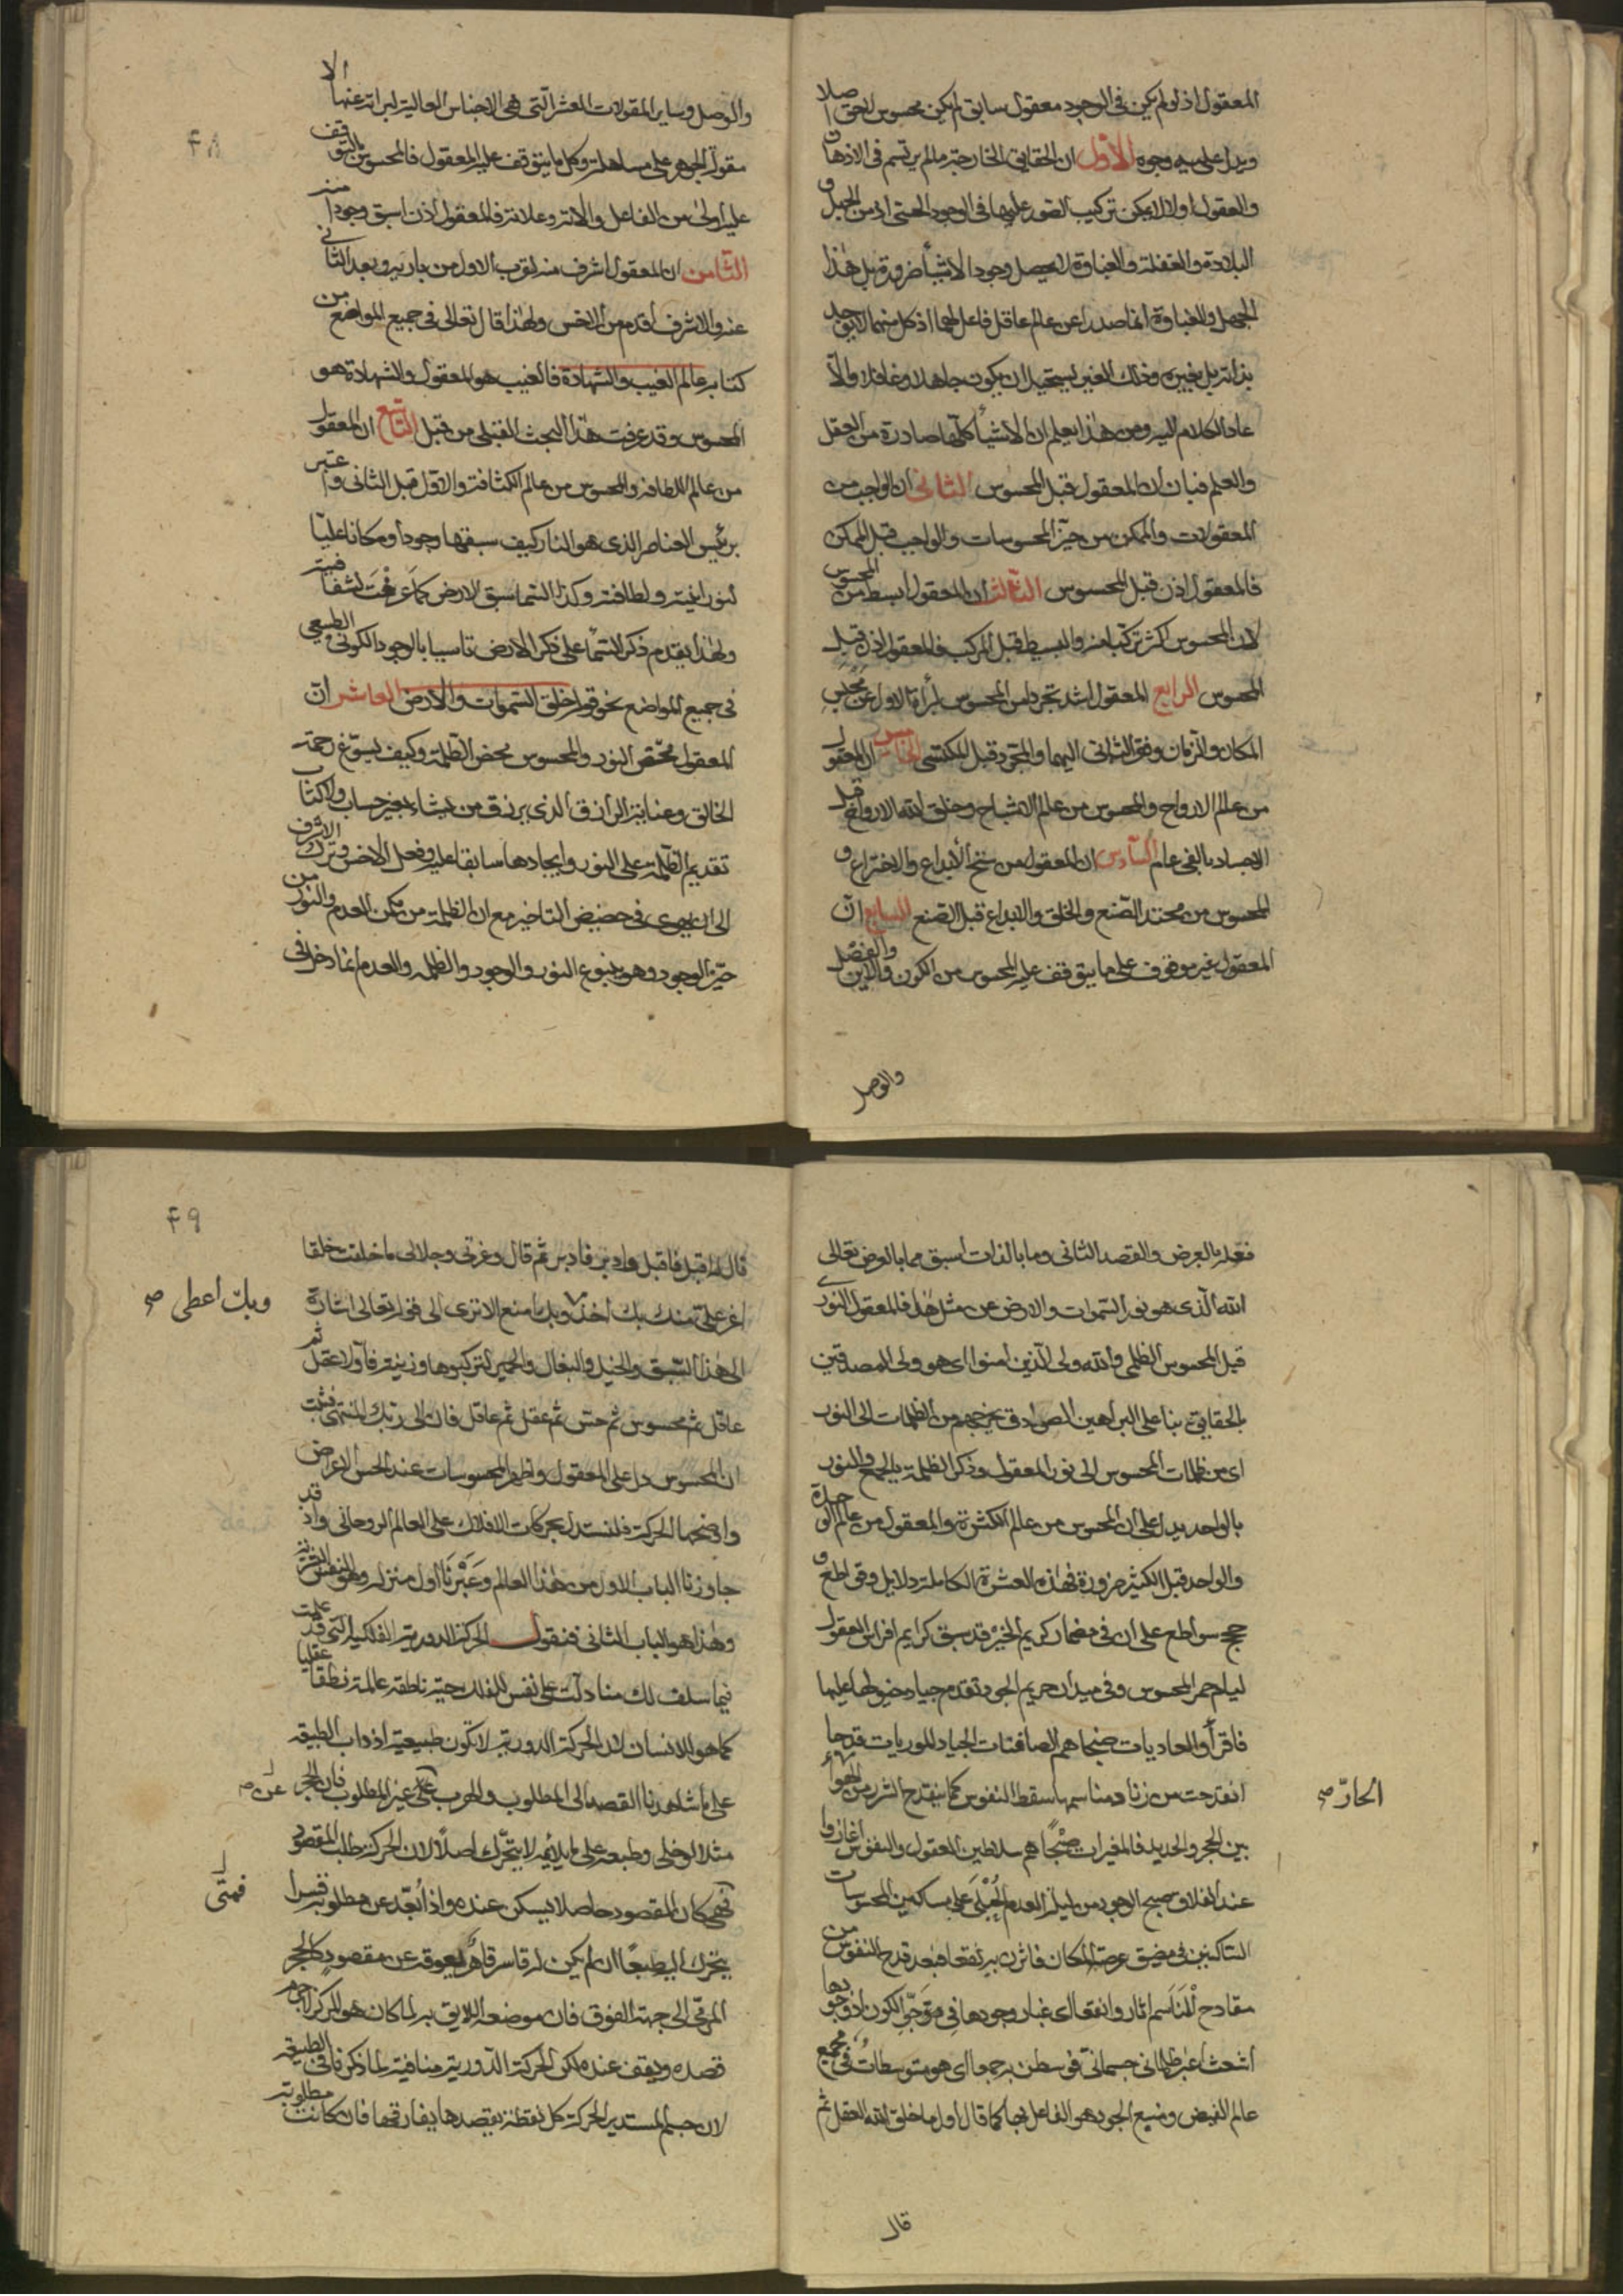 المعقول اذ لو لم يكن في الوجود معقول سابق لم يكن محسوس لاحق اصلا
ويدل عليه وجوه الأوّل ان الحقايق الخارجية ما لم يرتسم في الاذهان
والعقول اولا لا يمكن تركيب الصور عليها في الوجود الحسى اذ من الجهل و
البلادة والغفلة والغباوة لا يحصل وجود الاشيأ ضرورة بل هذا
الجهل والغباوة انما صدرا عن عالم عاقل فاعل لهما اذ كل منهما لا يوجد
بذاته بل بغيره وذلك الغير يستحيل ان يكون جاهلا وغافلا والّا
عاد الكلام اليه ومن هذا يعلم ان الاشيأ كلّها صادرة من العقل
والعلم فبان ان المعقول قبل المحسوس الثانى ان الواجب من
المعقولات والممكن من حيّز المحسوسات والواجب قبل الممكن
فالمعقول اذن قبل المحسوس الثالث ان المعقول ابسط من المحسوس
لان المحسوس اكثر تركبا منه والبسيط قبل المركب فالمعقول اذن قبل
المحسوس الرابع المعقول اشد تجردا من المحسوس لبرأة الاول عن
المكان والزمان وفقر الثانى اليهما والمجرّد قبل المكتسى الخامس ان المعقول
من عالم الارواح والمحسوس من عالم الاشباح وخلق الله الارواح قبل
الاجساد بالفى عام السّادس ان المعقول من سنخ الأبداع والاختراع و
المحسوس من محتد الصّنع والخلق والابداع قبل الصّنع السابع انّ
المعقول غير موقوف على ما يتوقف عليه المحسوس من الكون والاين والفصل
والوصل
والوصل وساير المقولات العشر الّتى هى الاجناس العالية لبرائته عنها الا
مقولة الجوهر على مساهلة وكل ما يتوقف عليه المعقول فالمحسوس بالتوقف
عليه اولى من الفاعل والالة وعلانتر فالمعقول اذن اسبق وجودا منه
الثّامن ان المعقول اشرف منه لقرب الاول من باريه وبعد الثانى
عنه والاشرف أقدم من الاخس ولهذا قال تعالى في جميع المواضع من
كتابه عالم الغيب والشهادة فالغيب هو المعقول والشهادة هو
المحسوس وقد عرفت هذا البحث القبلى من قبل التاسع ان المعقول
من عالم اللطافة والمحسوس من عالم الكثافة والاوّل قبل الثانى واعتبر
برئيس العناصر الذى هو النار كيف سبقها وجودا ومكانا عليّا
لنورانيته ولطافته وكذا السّما سبق الارض كما عرفت لشفافيته
ولهذا يقدم ذكر السّمأ على ذكر الارض تاسيا بالوجود الكونى الطبيعى
فى جميع المواضع نحو قوله خلق السّموات والارض العاشر انّ
المعقول محض النور والمحسوس محض الظلمة وكيف يسوّغ رحمة
الخالق وعناية الرازق الذى يرزق من يشاء بغير حساب ولا كتاب
تقديم الظلمة على النور وايجادها سابقا عليه وفعل الاخس وترك الاشرف
الى ان يهوى فى حضيض التاخير مع ان الظلمة من مكمن العدم والنور من
حيّز الوجود وهو ينبوع النور والوجود والظلمة والعدم انما دخلا فى
۴۸
فعله بالعرض والقصد الثانى وما بالذات اسبق مما بالعرض تعالى
الله الّذى هو نور السّموات والارض عن مثل هذا فالمعقول النورى
قبل المحسوس الظلمى والله ولى الّذين امنوا اى هو ولى المصدقين
بالحقايق بنا على البراهين الصوادق يخرجهم من الظلمات الى النور
اى من ظلمات المحسوس الى نور المعقول وذكر الظلمة بالجمع والنور
بالواحد يدل على ان المحسوس من عالم الكثرة والمعقول من عالم الوحدة
والواحد قبل الكثير ضرورة فهذه العشرة الكاملة دلايل وقواطع و
حجج سواطع على ان فى مضمار كريم الخير قد سبق كرايم افراس العقول
ليلم حمر المحسوس وفى ميدان حريم الجود تقدم جياد خيولها عليها
فاقرأ والعاديات ضبحا هم الصافنات الجياد للموريات قدحا
انقدحت من زناد مناسمها سقط النفوس كما ينقدح الشرر من الهوأ
بين الحجر والحديد فالمغيرات صبحًا هم سلاطين العقول والنفوس اغاروا
عند انفلاق صبيح الوجود من ليلة العدم على مساكين المحسوسات
السّاكنين فى مضيق عرصة المكان فاثرن به نقعا فبعد قدح النفوس من
مقادح المناسم اثاروا نقعا اى غبار وجودها فى الكون اذ وجودها
اشعث اغبر ظلمانى جسمانى فوسطن به جمعا اى هو متوسطات فى مجمع
عالم الفيض ومنبع الجود هو الفاعل بها كما قال اول ما خلق الله العقل ثم
الحارّ صح
قال
قال له اقبل فاقبل وادبر فادبر ثم قال وعزتى وجلالى ما خلقت خلقا
اعز علىّ منك بك اخذ وبك امنع الا ترى الى قوله تعالى اشارة
الى هذا السّبق والخيل والبغال والحمير لتركبوها وزينة فاوّلا عقل ثم
عاقل ثم محسوس ثم حسّ ثم عقل ثم عاقل فان الى ربّك المنتهى فثبت
ان المحسوس دل على المعقول واظهر المحسوسات عند الحس الاعراض
واوضحها الحركة فلنستدل بحركات الافلاك على العالم الروحانى واذ قد
جاوزنا الباب الاول من هذا العالم وعبّرنا اول منزله وهو النفس
وهذا هو الباب الثانى فنقول الحركة الدورية الفلكية الّتى قد علمت
فيما سلف لك منا دلّت على نفس للفلك حية ناطقة عالمة نطقا عقليا
كما هو للانسان لان الحركة الدورية لا تكون طبيعية اذ داب الطبيعة
على ما شاهدنا القصد الى المطلوب والهرب عن غير المطلوب فان الحجر
مثلا لو خلى وطبعه على ما يلائمه لا يتحرّك اصلًا لان الحركة طلب المقصود
فمتى كان المقصود حاصلا يسكن عنده واذا أُبعّد عن مطلوبه قسرا
يتحرك اليه طبعًا ان لم يكن له قاسر قاهر يعوقه عن مقصوده كالحجر
المرمّى الى جهة الفوق فان موضعه اللايق به لما كان هو المركز
قصده ويقف عنده لكن الحركة الدّورية منافية لما ذكرنا فى الطبيعة
لان جسم المستدير الحركة كل نقطة يقصدها يفارقها فان كانت مطلوبة
۴۹
وبك اعطى صح
عن صح
فمتّى